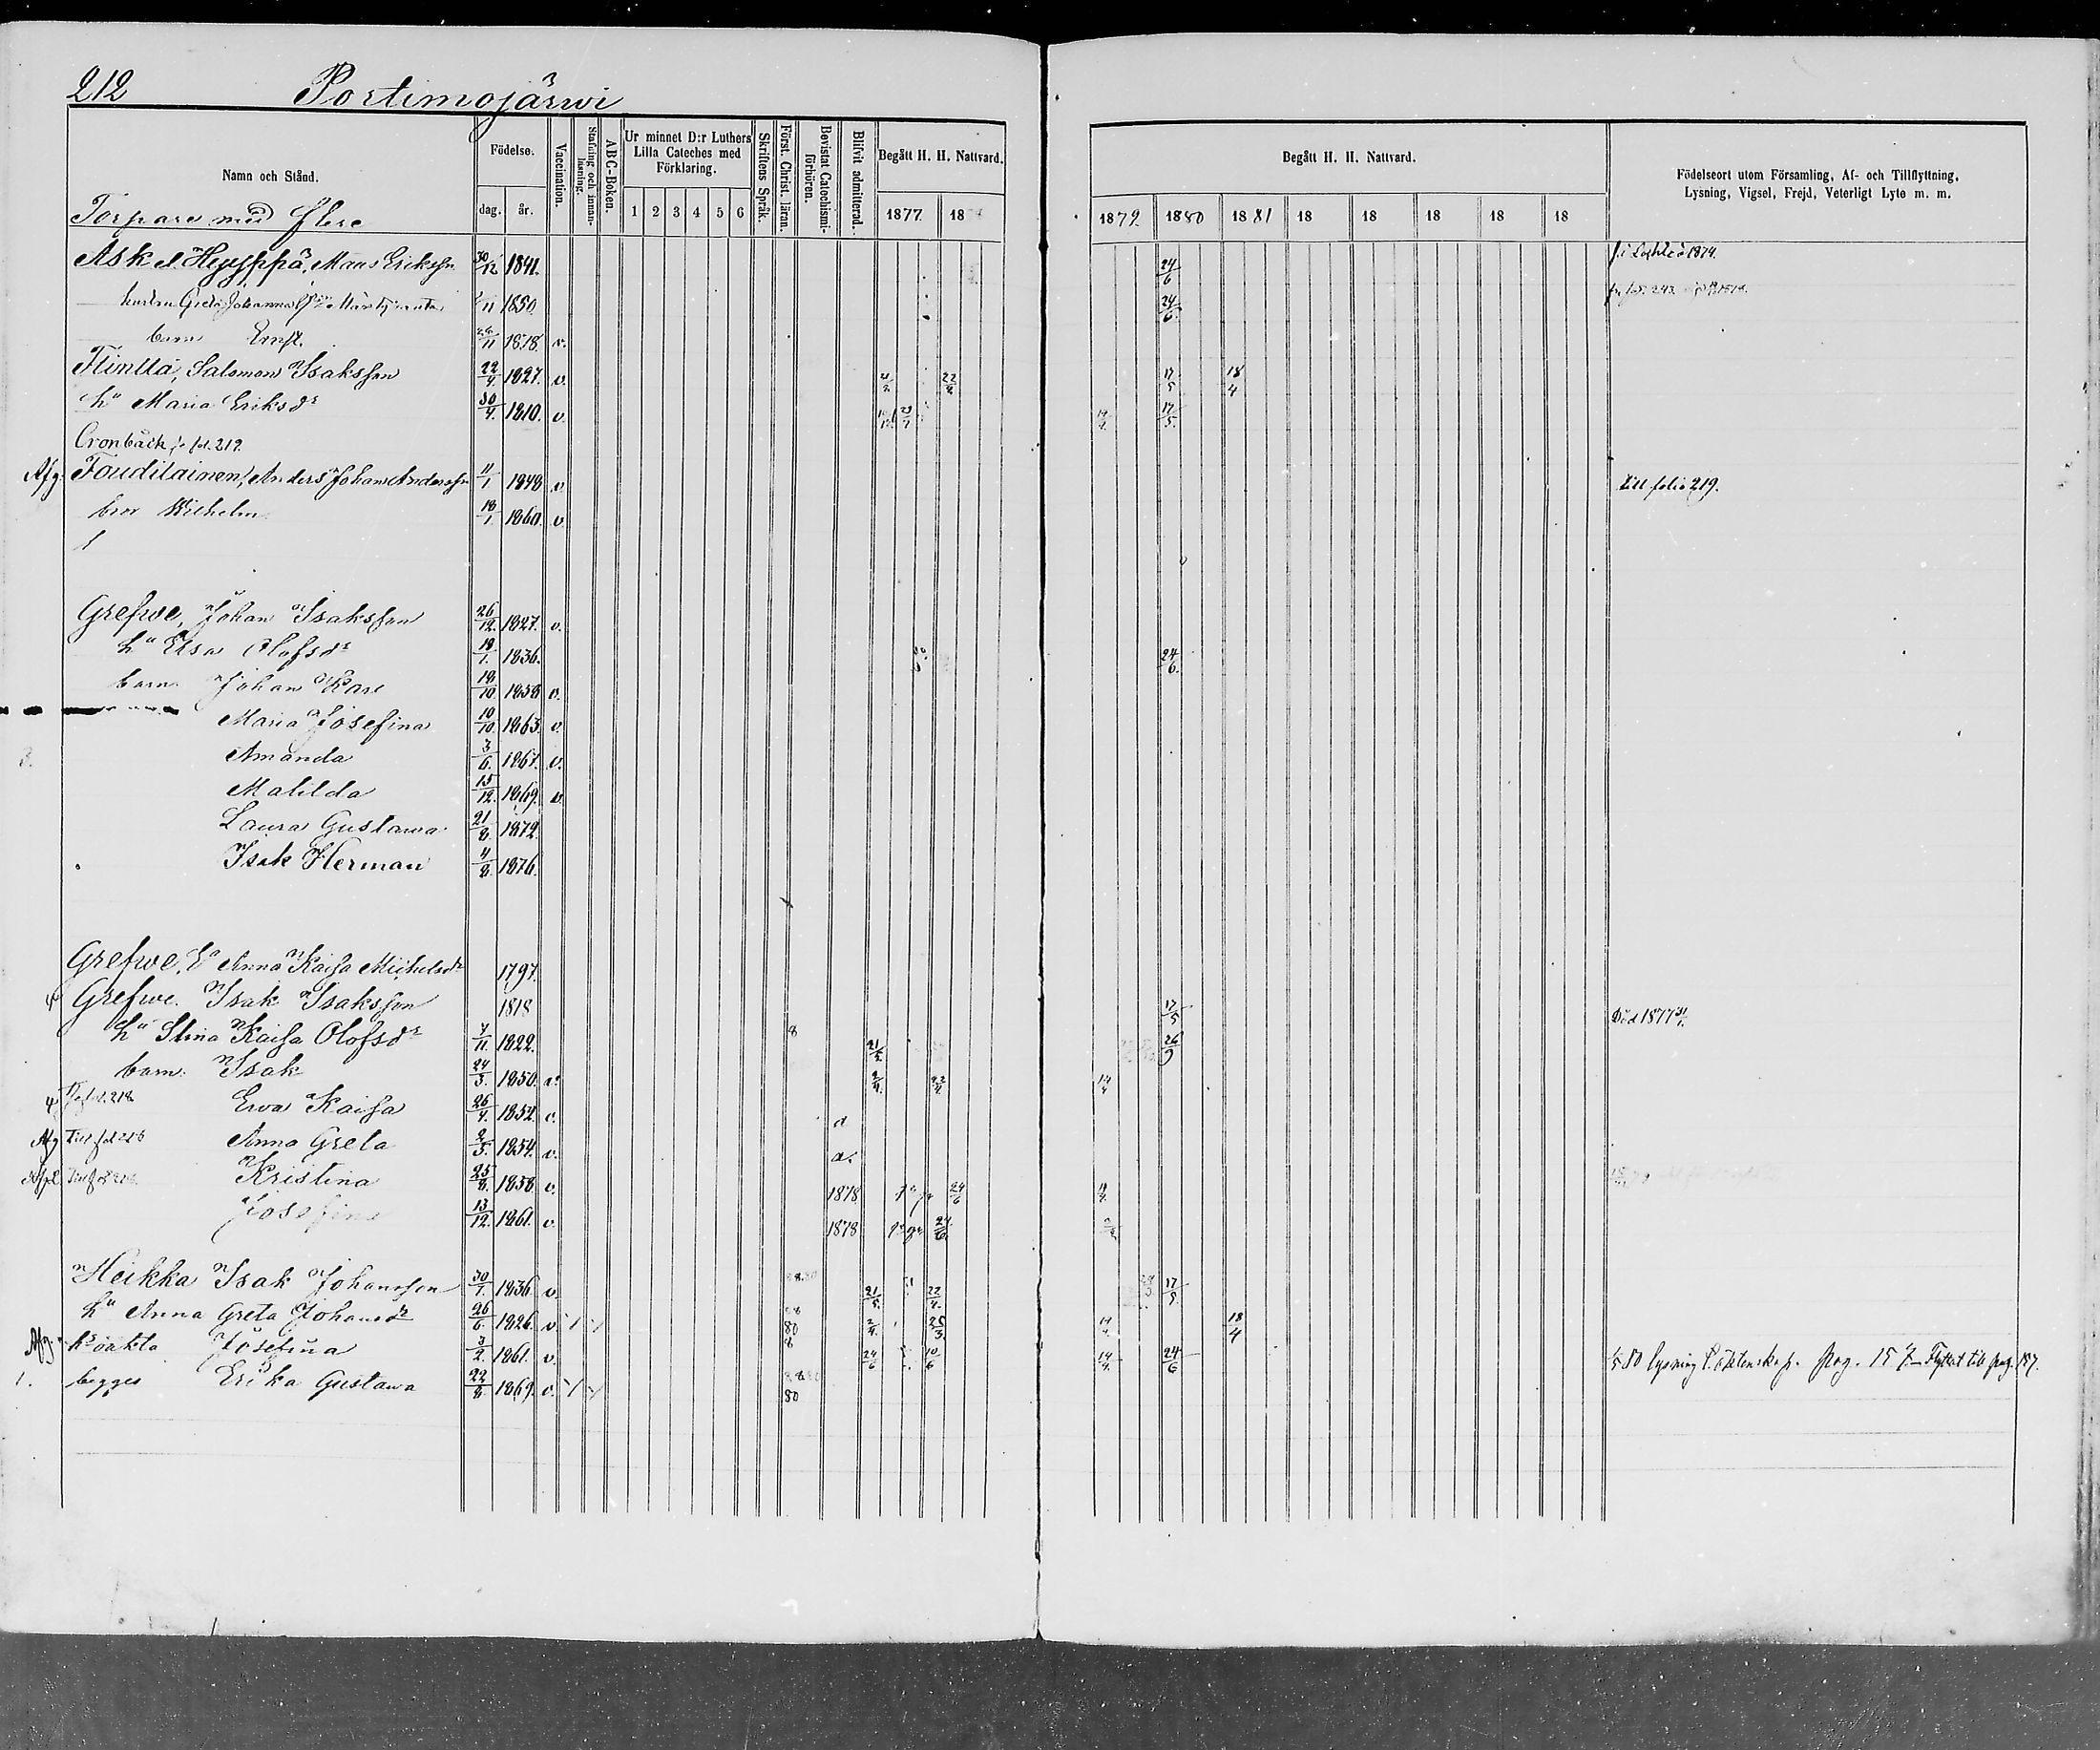 212 Portimojärwi
Namn och Stånd.
Födelse.
dag. år.
Vaccination.
Stafning och innanläsning.
ABC-Boken.
Ur minnet D:r Luthers Lilla Cateches med Förklaring.
1 2 3 4 5 6
Skriftens Språk.
Först. Christ. läran.
Bevistat Catechismiförhören.
Blifvit admitterad.
Begått H. H. Nattvard.
1877 18
Begått H. H. Nattvard.
1879 1880 1881 18 18 18 18 18
Födelseort utom Församling, Af- och Tillflyttning, Lysning, Vigsel, Frejd, Veterligt Lyte m. m.
Torpare med flere
Ask Måns Eriksson 30/12 1841. 24/6 1874.
hustru Greta Johanna 11 1850. 24/6
barn Ernst. 11 1878. v.
Flintta, Salomon Isaksson 22/4. 1827. v. 22/4 17/5 18/4
hu Maria Eriksdr 30/4. 1810. v. 17/5.
Cronbäck, fol. 219.
Afg. Fouditainen, Anders Johan Andersson 11/1 1848 v. Till folio 219.
bror Wilhelm 18/1. 1860. v.
Grefwe, Johan Isaksson 26/12. 1827. v.
hu Elsa Olofsdr 18/1. 1836. 24/6.
barn Johan Kare 18/10 1858 v.
Maria Josefina 10/10. 1863. v.
Amanda 3/6. 1867. v.
Matilda 15/12. 1869. v.
Laura Gustawa 21/8. 1872.
Isak Herman 4/8. 1876.
Grefwe, Ea Anna Kaisa Michelsdr 1797.
Grefwe. Isak Isaksson 1818 17/5 Död 1877 31/1.
hu Stina Kaisa Olofsdr 4/11. 1822. 8 21/5. 26/9
barn. Isak 24/3. 1850. 2/4. 22/4 14/4
fol. 218 Ewa Kaisa 26/4. 1852. v. a
Afg Till fol 216 Anna Greta 2/3. 1854. v. a.
Kristina 25/8. 1858. v. 1878 24/6
Josefina 13/12. 1861. v. 1878 24/6.
Heikka Isak Johansson 30/1. 1836. v. 21/5. 22/4. 17/5
hu Anna Greta Johansdr 26/6. 1826. v. 80 2/4. 25/3. 14/4. 18/4
Afg. hs oäkta Josefina 3/2. 1861. v. 8 24/6 10/6 14/4 24/6 80 lysning t. äktenskap. pag. 157 - Flyttat till pag. 157.
1. begges Erika Gustawa 22/8. 1869. v. 80